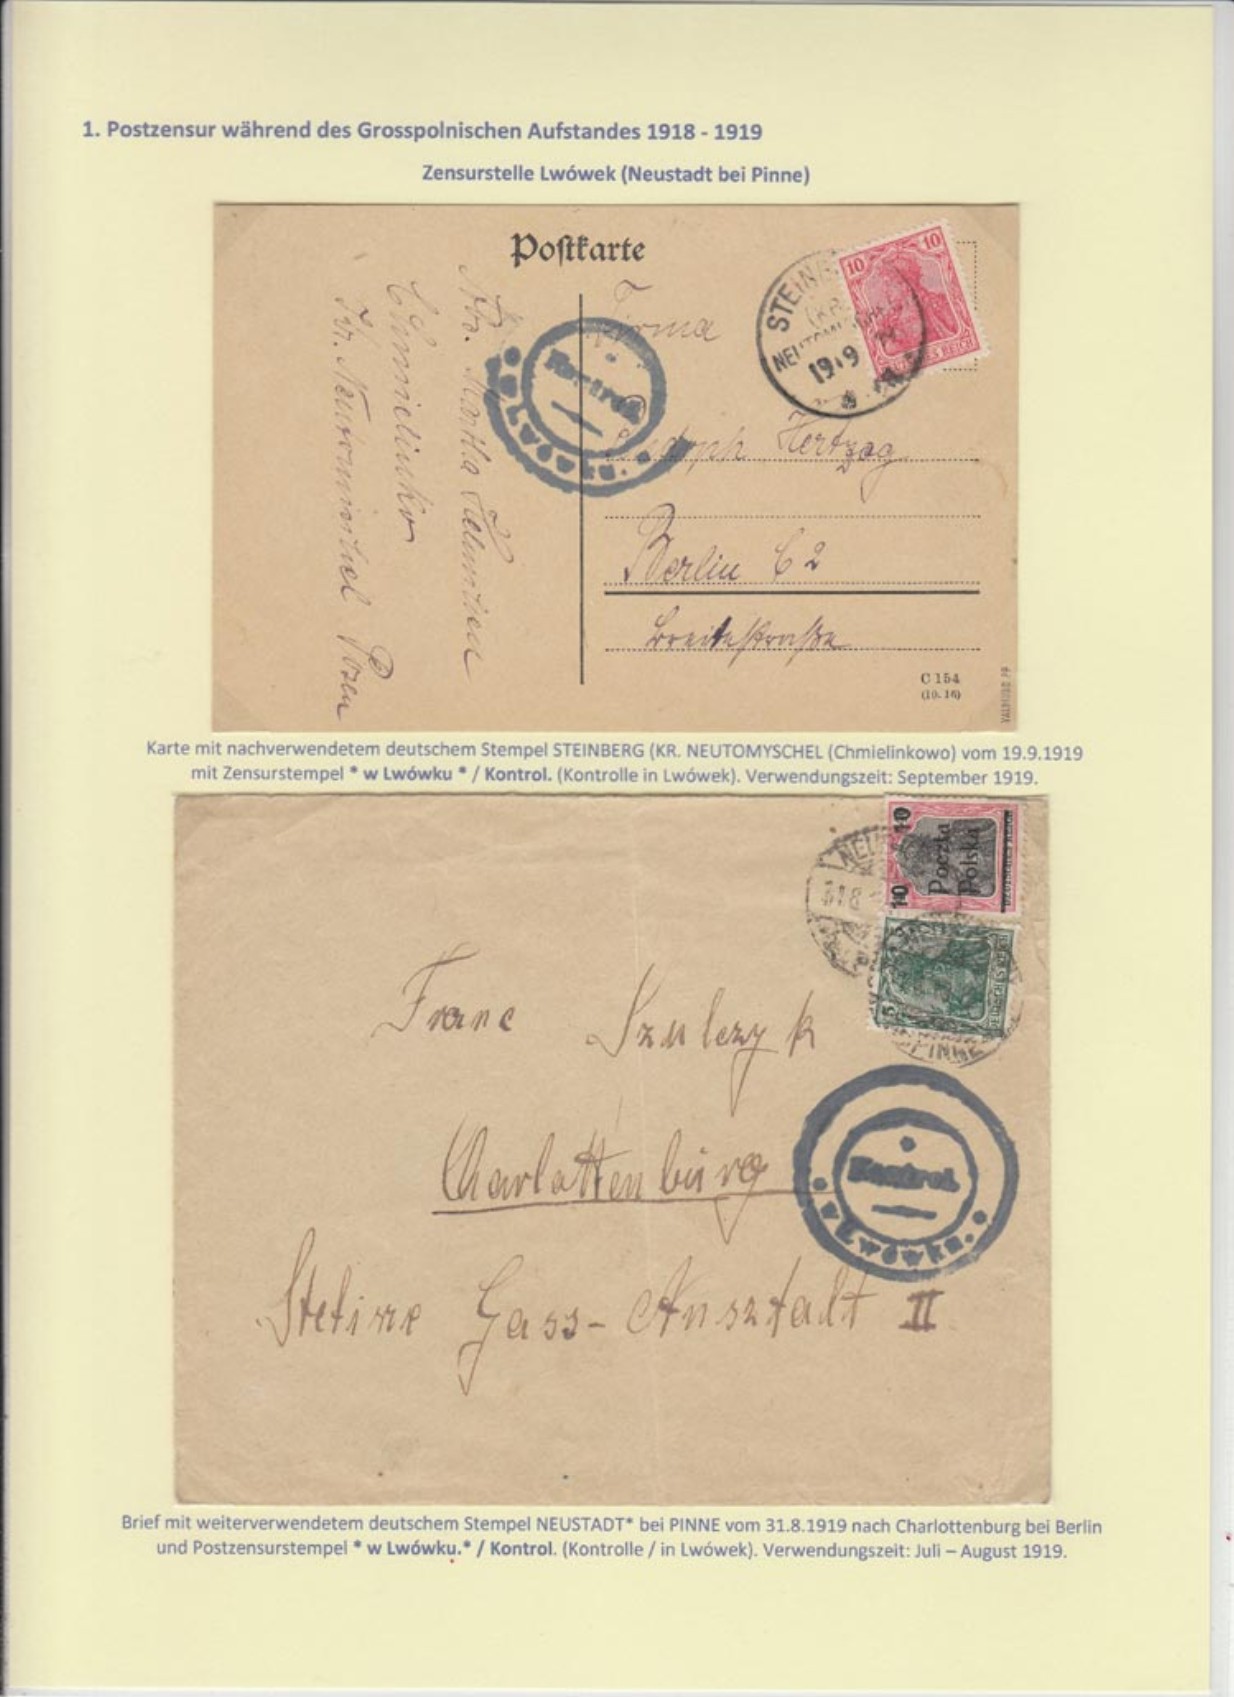 1. Postzensur während des Grosspolnischen Aufstandes 1918 - 1919
Zensurstelle Lwówek (Neustadt bei Pinne)
Postkarte
10 10
STEINB
(KR.
NEUTOM
19.9
DEUTSCHES REICH
Firma
Rudolph Hertzog
Berlin C 2
Breitestraße
Kontrol.
w Lwówku.
Abs. Martha
Chmielinko
Kr. Neutomischel Posen
C 154
(10. 16)
Karte mit nachverwendetem deutschem Stempel STEINBERG (KR. NEUTOMYSCHEL (Chmielinkowo) vom 19.9.1919
mit Zensurstempel * w Lwówku * / Kontrol. (Kontrolle in Lwówek). Verwendungszeit: September 1919.
10 10
Poczta
Polska
DEUTSCHES REICH
5
DEUTSCHES REICH
NEU
31.8
PINNE
Franc Szulczyk
Charlottenburg
Kontrol.
w Lwówku.
Gass-Ansztadt II
Brief mit weiterverwendetem deutschem Stempel NEUSTADT* bei PINNE vom 31.8.1919 nach Charlottenburg bei Berlin
und Postzensurstempel * w Lwówku.* / Kontrol. (Kontrolle / in Lwówek). Verwendungszeit: Juli – August 1919.